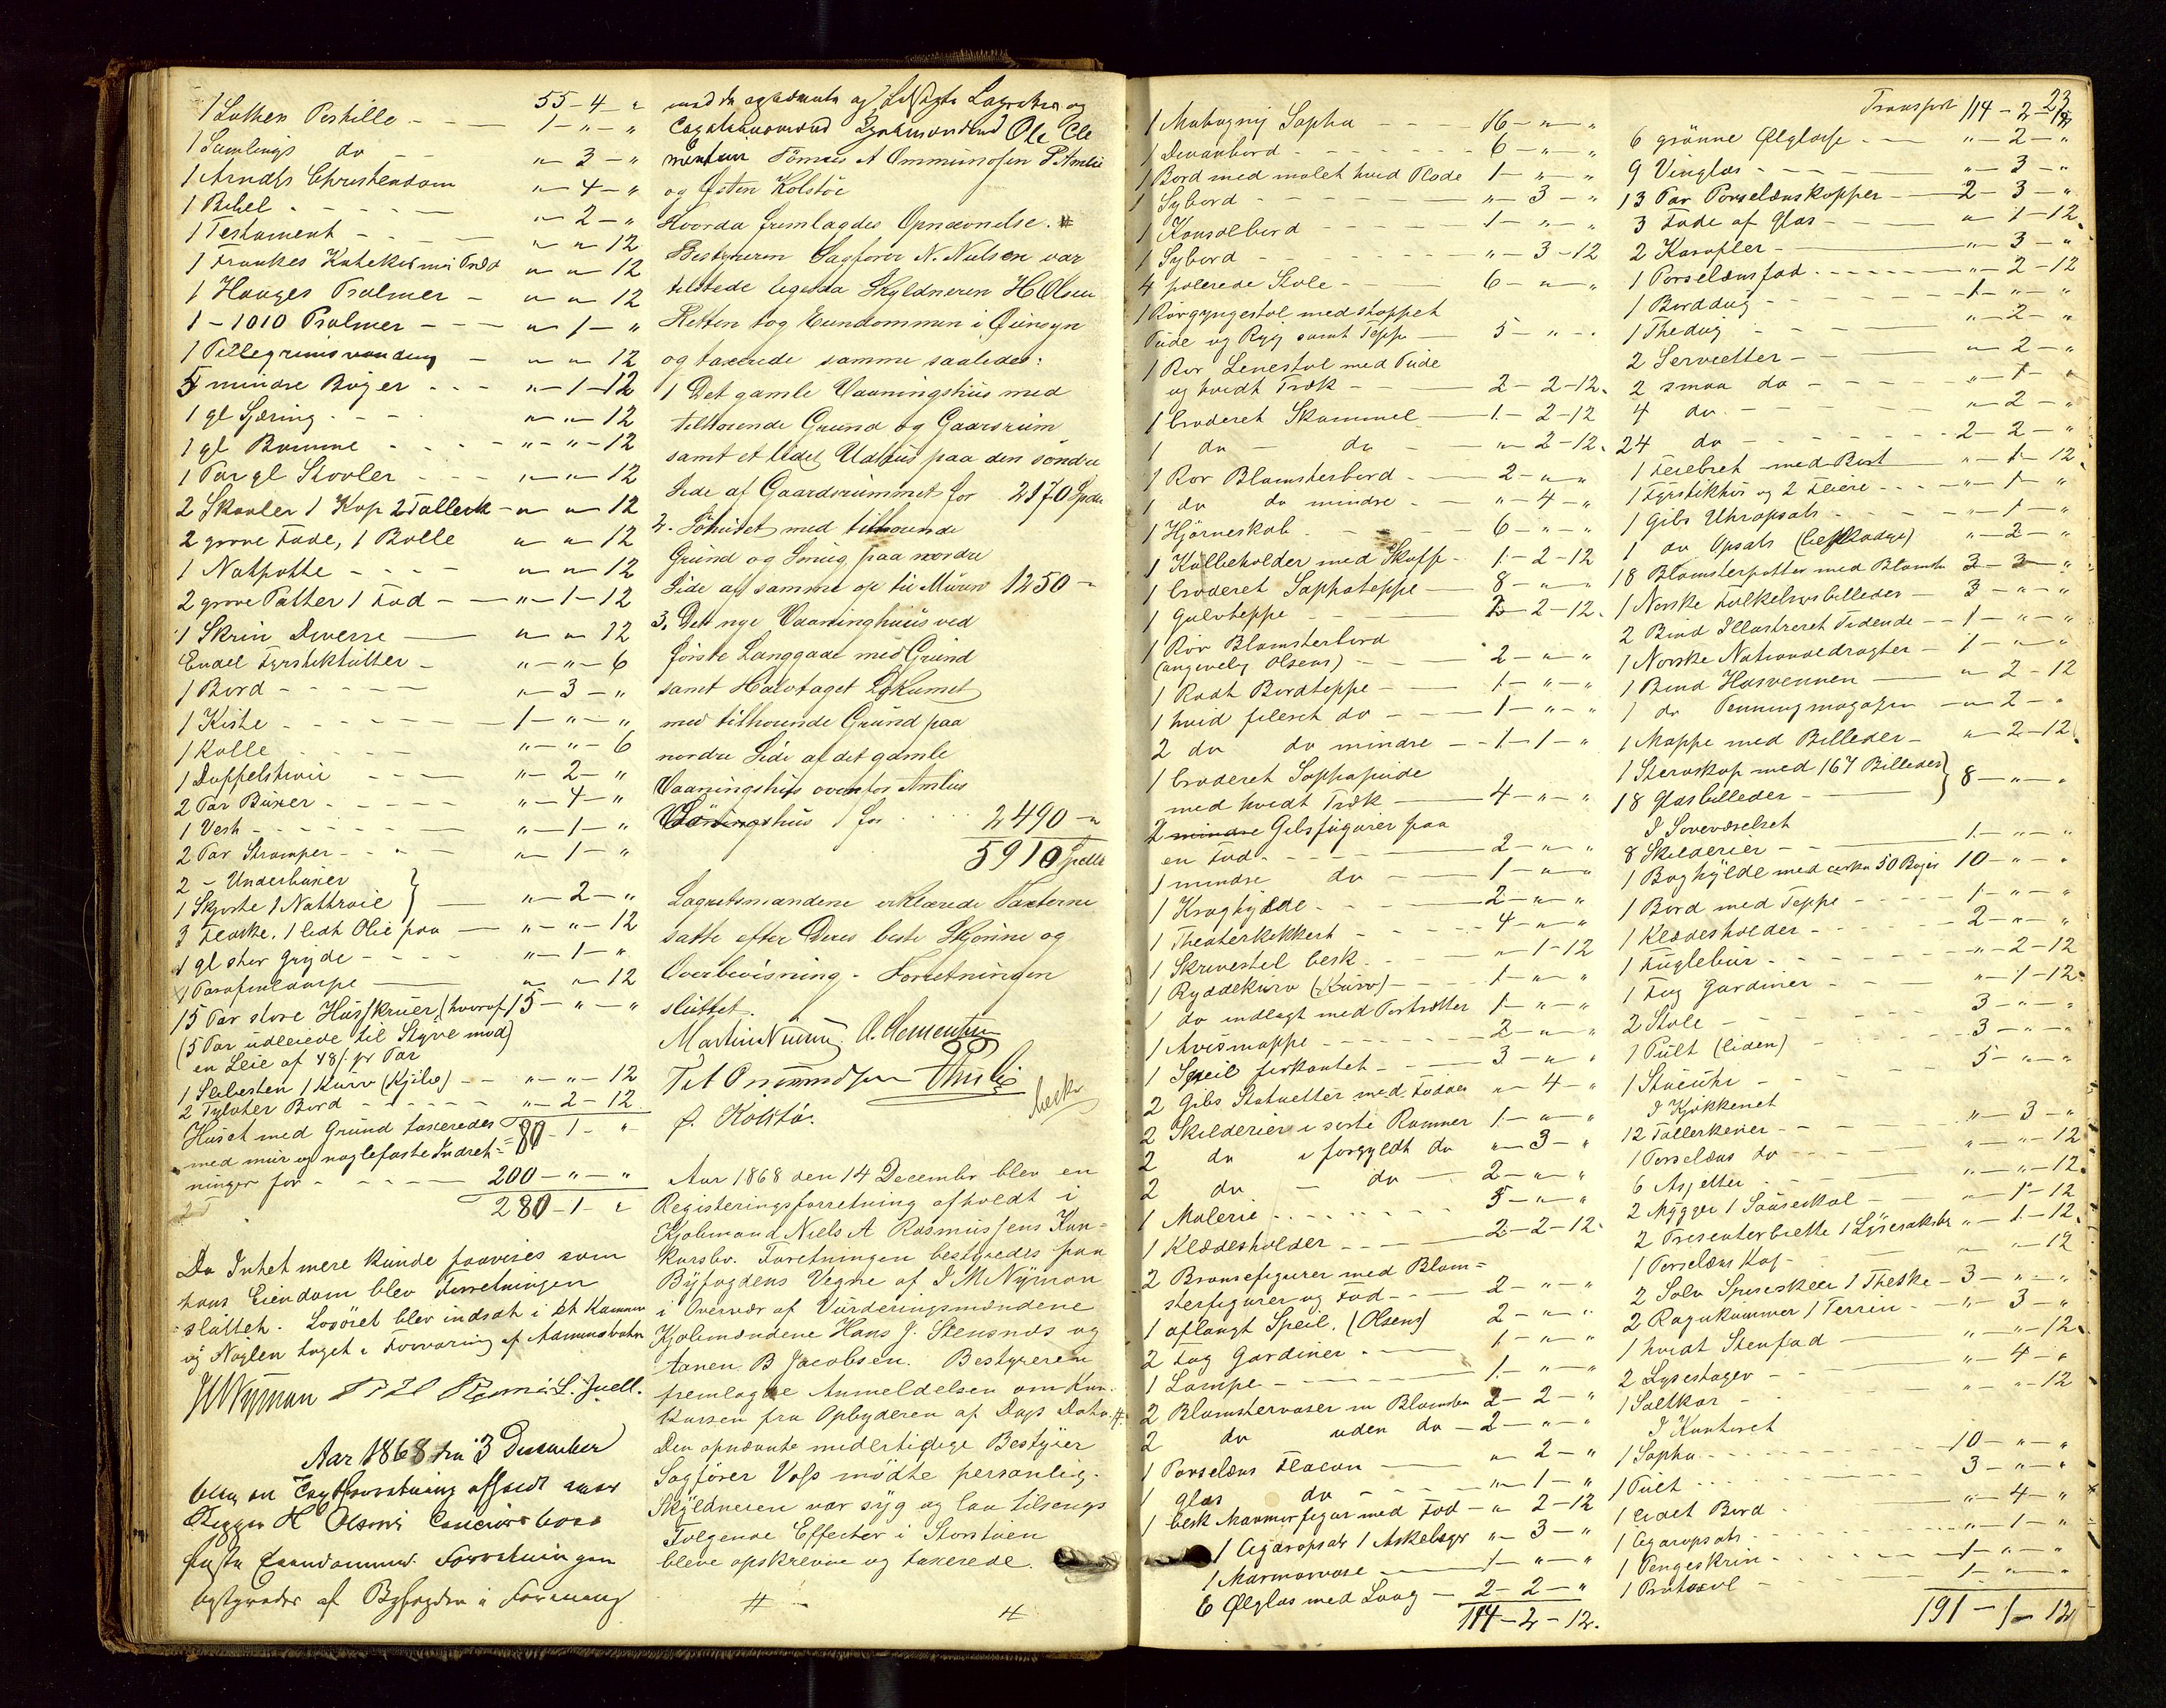 55-4-"
1 Luthers Postille - - 1-"-"
1 Samlings do - - "-3-"
1 Arndts Christendom "-4-"
1 Bibel - - - - "-2-"
1 Testament - - - "-"-12
1 Frankes Katekismi Præd "-"-12
1 Hauges Psalmer - "-"-12
1-1010 Psalmer - - - "-1-"
1 Pillegrimsvandring - "-"-12
5 mindre Bøger - - - "-1-12
1 gl - - - "-"-12
1 gl Bomme - - - "-"-12
1 Par gl Støvler - - - "-"-12
2 Skaaler 1 Kop 2 Tallerk - "-"-12
2 grove Fade, 1 Bolle "-"-12
1 Natpotte - - - - "-"-12
2 grove Potter 1 Fad - - "-1-12
1 Skrin Diverse - "-"-12
Endel Fyrstikfutter - "-"-6
1 Bord - - - - - "-3-"
1 Kiste - - - - - 1-"-"
1 Kolle - - - - "-"-6
1 Doppeltroie - - - "-2-"
2 Par Buxer - - - - "-4-"
1 Vest - - - - - "-1-"
2 Par Strømper - - - "-1-"
2 - Underbuxer
1 Skjorte 1 Nattroie } - "-2-"
3 Flaske, 1 lidt Olie paa - "-"-12
1 gl stor Gryde - - - "-1-"
1 Parafinlampe - "-"-12
15 Par store Husskruer, (hvoraf 15-"-"
(5 Par udleiede til Styve mod)
en Leie af 48 ß. pr Par
1 Slibesten 1 Kurv (Kjibe) - - "-"-12
2 Tylvter Bord - - - - "-2-12
80-1-"
Huset med Grund taxeredes
med mur og naglefaste Indret=
ninger for - - - - 200-"-"
280-1-"
Da Intet mere kunde paavises som
hans Eiendom blev Forretningen
sluttet. Løsøret blev indsat i et Kammer
og Nøglen taget i Forvaring af
JM Nyman L. Juell.
Aar 1868 den 3 December
blev en Taxtforretning afholdt over
Skipper H Olsens Concursboes
faste Eiendomme. Forretningen
bestyredes af Byfogden i Forening
med de opnævnte og Lagrettes og
Ole Cle
mentsen Tønnes A Ommundsen P Amlie
og Østen Kolstøe
Hvorda fremlagdes Opnævnelse. #
Bestyreren Sagfører N. Nielsen var
tilstede ligesaa Skyldneren H Olsen
Retten tog Eiendommen i Øiensyn
og taxerede samme saaledes:
1 Det gamle Vaaningshus med
tilhørende Grund og Gaardsrum
samt et lidet Udhus paa den søndre
Side af Gaardsrummet for 2170 Spdlr
2. Søhuset med tilhørende
Grund og Smug paa nordre
Side af samme op til Muren 1250-"
3. Det nye Vaaninghuus ved
første Langgade med Grund
samt Halvtaget Lokumet
med tilhørende Grund paa
nordre Side af det gamle
Vaaningshus ovenfor Amlies
Vaaningshus 1 for 2490-"
5910 Spdlr
Lagretsmændene erklærede Taxterne
satte efter Deres beste Skjønne og
Overbevisning. Forretningen
sluttet.
Martin Nissen. O. Clementsen
T A Ommundsen Amlie
Ø. Kolstø.
Aar 1868 den 14 Decembr blev en
Registeringsforretning afholdt i
Kjøbmand Niels A Rasmussens Kon=
kursbo. Foretningen bestyredes paa
Byfogdens Vegne af J M Nyman
i Overvær af Vurderingsmændene
Kjøbmændene Hans J. Stensnæs og
Tønnes B Jacobsen. Bestyreren
fremlagde Anmeldelsen om Kon-
kursen fra Opbyderen af Dags Dato. #
Den opnævnte midlertidige Bestyrer
Sagfører Voss mødte personlig.
Skyldneren var syg og laa tilsengs
Følgende Effecter i Storstuen
bleve opskrevne og taxerede.
# - #
23
1 Mahogny Sopha - - - 16-"-"
1 Divanbord - - - - - 6-"-"
1 Bord med malet hvid Plade 1-"-"
1 Sybord - - - - - "-3-"
1 Konsolbord - - - - 1-"-"
1 Sybord - - - - - "-3-12
4 polerede Stole - - - 6-"-"
1 Rørgyngestol med stoppet
Pude og Ryg samt Teppe - 5-"-"
1 Rør Lenestol med Pude
og hvidt Træk - - 2-2-12
1 broderet Skammel - 1-2-12
1 do - do - "-2-12
1 Rør Blomsterbord - 2-"-"
1 do do mindre - "-4-"
1 Hjørneskab - - - 6-"-"
1 Kulbeholder med Skuffe - 1-2-12
1 broderet Sophateppe - 8-"-"
1 Gulvteppe - - 2-2-12
1 Rør Blomsterbord
(angivelig Olsens) - - 2-"-"
1 Rødt Bordteppe - 1-"-"
1 hvid fileret do - - 1-"-"
2 do do mindre - - 1-1-"
1 broderet Sophapude
med hvidt Træk - 4-"-"
2 mindre Gibsfigurer paa
en Fod - - - - 2-"-"
1 mindre do - - 1-"-"
1 Kroghylde - - - 2-"-"
1 Theaterkikkert - - - 4-"-"
1 Skrivestel besk - - "-1-12
1 Ryddekurv (Kurv) - - 1-"-"
1 do indlagt med Portrætter 1-"-"
1 Avismappe - - - 2-"-"
1 Speil firkantet - - 3-"-"
2 Gibs Statuetter med Fødder "-4-"
2 Skilderier i sorte Rammer 1-"-"
2 do i forgyldt do "-3-"
2 do - do - 2-"-"
1 Malerie - - - - 5-"-"
1 Klædesholder - - - 2-2-12
2 Bronsefigurer med Blom=
sterfigurer og Fod - - 2-"-"
1 aflangt Speil. (Olsens) 2-"-"
2 Fag Gardiner - - 1-"-"
1 Lampe - - - - 1-"-"
2 Blomstervaser m Blomster 2-2-"
2 do uden do - 2-"-"
1 Porselæns Flacon - - "-2-"
1 Glas do - - "-1-"
1 besk Marmorfigur med Fod - "-2-12
1 Cigaropsats 1 Askebæger "-3-"
1 Marmorvase - 1-"-"
6 Ølglas med Laag - 2-2-"
114-2-12.
Transport 114-2-12
6 grønne Ølglasse - - "-2-"
9 Vinglas - - - - "-3-"
13 Par Porselænskopper - 2-3-"
3 Fade af Glas - - "-1-12
2 Karafler - - - "-3-"
1 Porselænsfad - - - - "-2-12
1 Borddug - - - - 1-"-"
1 Thedug - - - - "-2-"
2 Servietter - - - "-2-"
2 smaa do - - - "-1-"
4 do - - - - "-2-"
24 do - - - - 2-2-"
1 Feiebret med Kost - "-1-12
1 Fyrstikhus og 2 Feiere - - - "-1-"
1 Gibs Uhropsats - - - "-1-"
1 do Opsats (beskadiget) "-2-"
18 Blomsterpotter med Blomster 3-3-"
1 Norske Folkelivsbilleder - 3-"-"
2 Bind Illustreret Tidende - 1-"-"
1 Norske Nationaldragter - 1-"-"
1 Bind Husvennen - "-2-12
1 do Penningmagasin - "-2-"
1 Mappe med Billeder - "-2-12
1 Steroskop med 167 Billeder
18 Glasbilleder - } 8-"-"
I Soveværelset
8 Skilderier - - 1-"-"
1 Boghylde med cirka 50 Bøger 10-"-"
1 Bord med Teppe - - - 1-"-"
1 Klædesholder - - - 2-"-"
1 Fuglebur - - - "-2-12
1 Fag Gardiner - - - "-1-12
2 Stole - - - - 3-"-"
1 Pult (liden) - - - 3-"-"
1 Stueuhr - - - - 5-"-"
I Kjøkkenet
12 Tallerkener - - - "-3-"
1 Porselæns do - - - "-"-12
6 Asjetter - - - "-"-12
2 Mugger 1 Sauseskaal - - "-1-12
2 Presenterbrette 1 Lysesaks "-1-12
1 Porselæns Kop - "-"-12
2 Sølv Spiseskeer 1 Theske - 3-"-"
2 Ragukummer 1 Terrin - - "-3-"
1 hvidt Stenfad - "-"-12
2 Lysestager - - "-4-"
1 Saltkar - "-"-12
I Kontoret
1 Sopha - - - - 10-"-"
1 Pult - - - - 3-"-"
1 lidet Bord - - "-4-"
1 Cigaropsats - - - "-1-"
1 Pengeskrin - - - 1-"-"
1 Protocol - - - 1-"-"
191-1-12